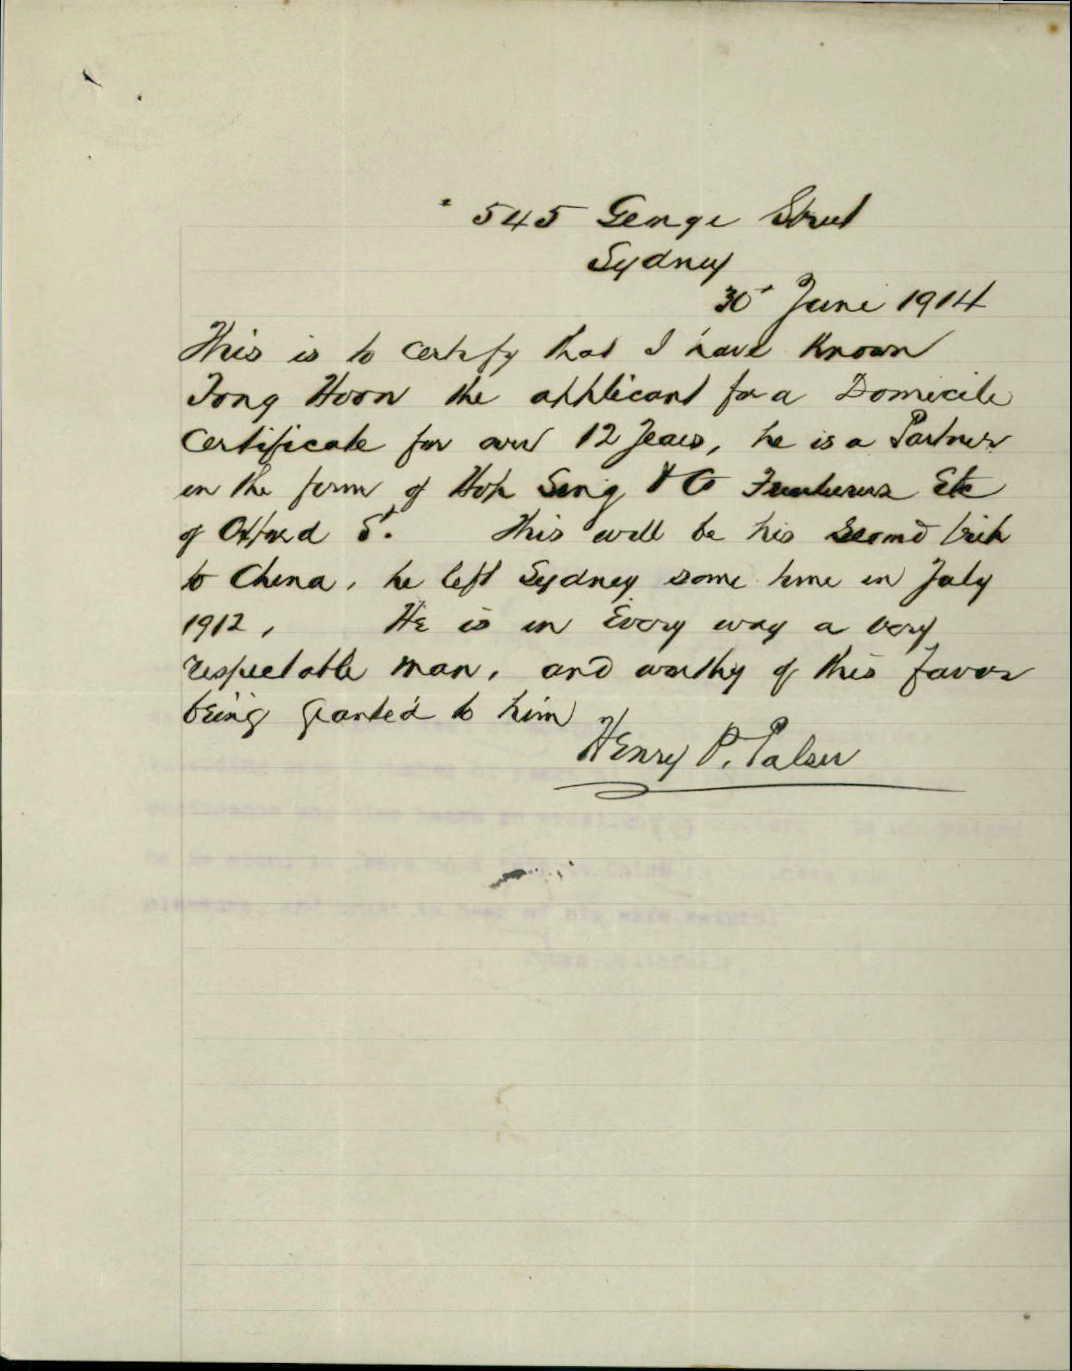 545 George Street
Sydney
30 June 1914
This is to certify that I have known
Tong Hoon the applicant for a Domicile
Certificate for over 12 years, he is a Partner
in the firm of Hop Sing & Co Fruiterers Etc
of Oxford St. This will be his second trip
to China, he left Sydney some time in July
1912, He is in Every way a very
respectable man, and worthy of this favor
being granted to him
Henry P. Palser